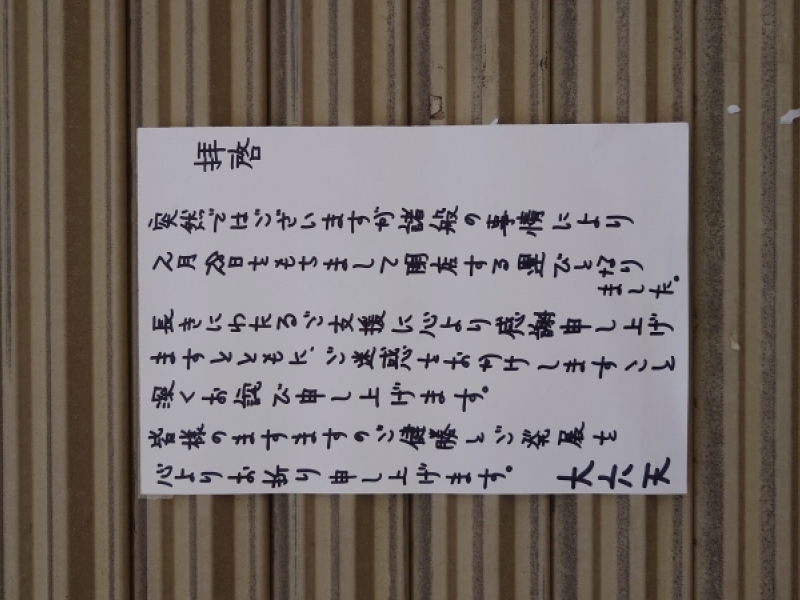 拝啓
突然ではございますが諸般の事情により
2月28日をもちまして閉店する運びとなり
ました。
長きにわたるご支援に心より感謝申し上げ
ますとともに、ご迷惑をおかけしますこと
深くお詫び申し上げます。
皆様のますますのご健勝とご発展を
心よりお祈り申し上げます。
大六天